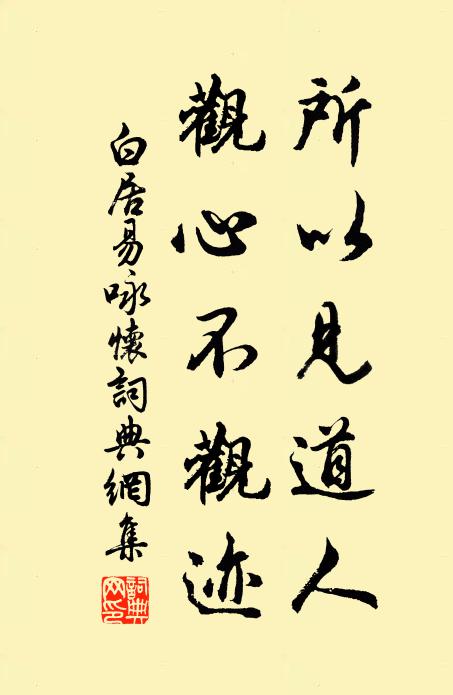 所以見道人
觀心不觀迹
白居易咏懷詞典網集
詞典网印